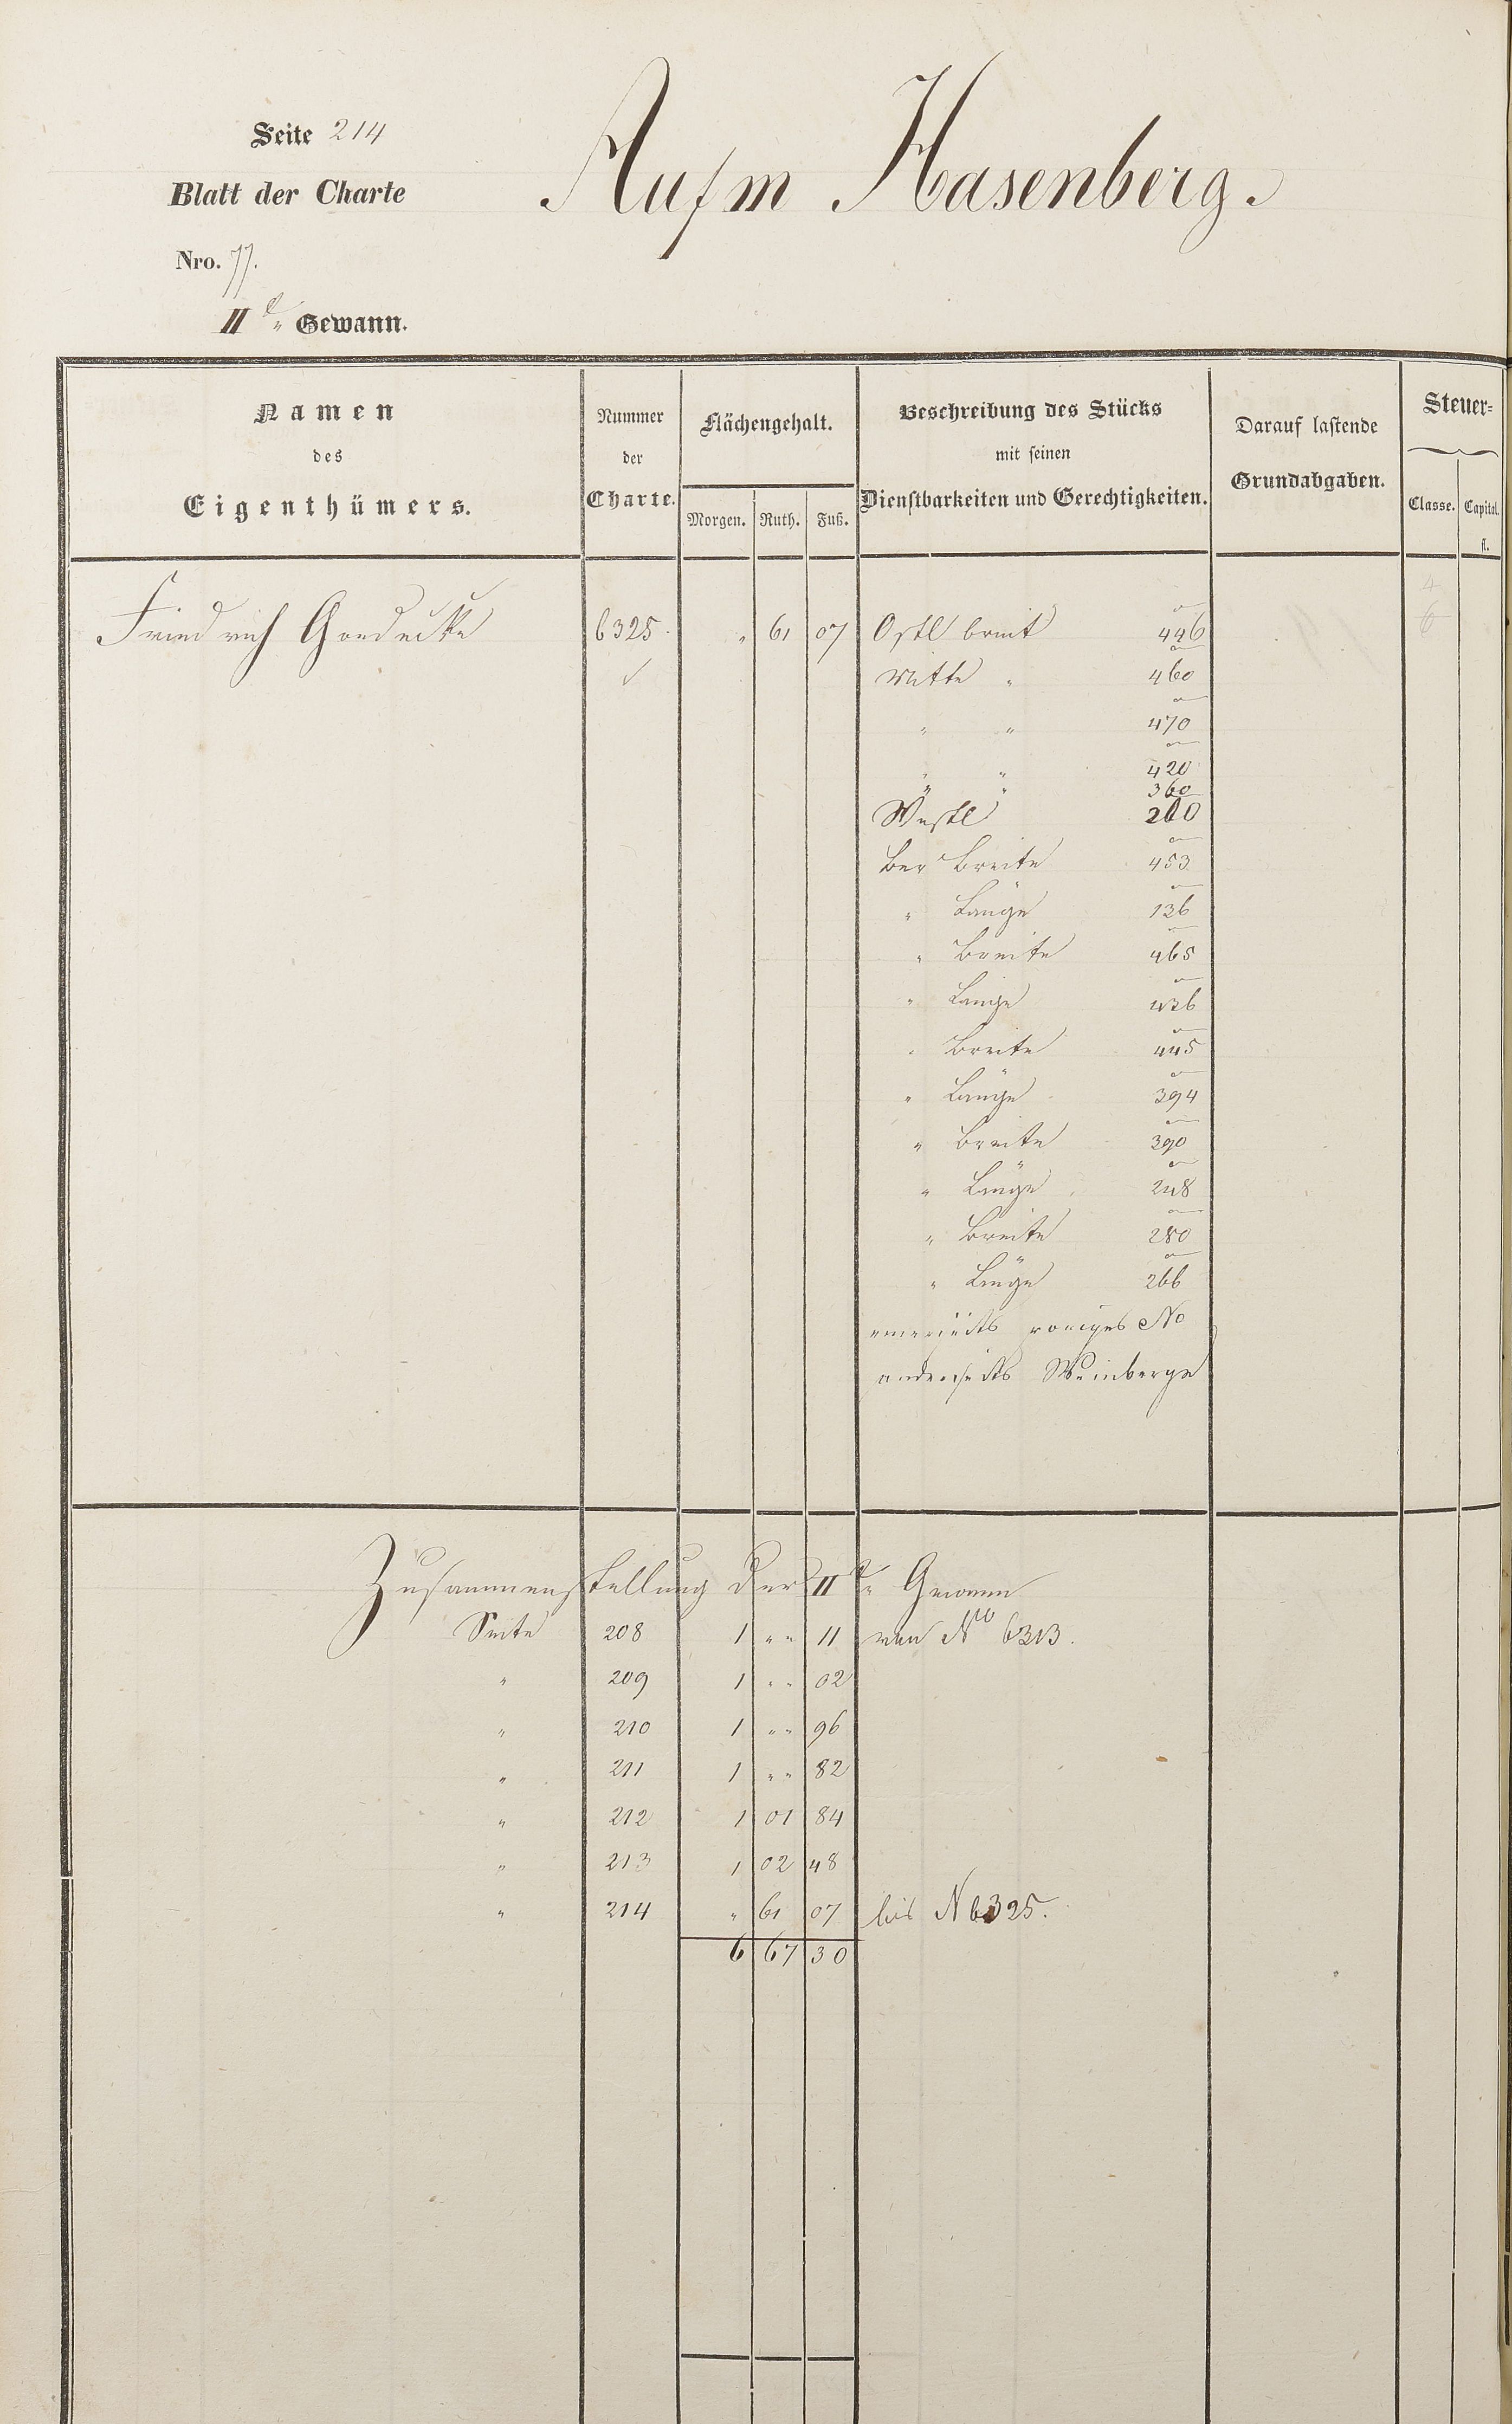 Seite 214
Aufm Hasenberg.
Blatt der Charte
Nro. 77.
II te Gewann.
Namen des Eigenthümers.
Nummer der Charte.
Flächengehalt.
Morgen. Ruth. Fuß.
Beschreibung des Stücks mit seinen Dienstbarkeiten und Gerechtigkeiten.
Darauf lastende Grundabgaben.
Steuer=
Classe. Capital. fl.
4
6
Friedrich Goedecke 6325. " 61 07 Östl breit 446
Mitte " 460
" " 470
" " 420
" " 360
Westl 260
Ber Breite 453
" Länge 136
" Breite 465
" Länge 436
" Breite 445
" Länge 394
" Breite 390
" Länge 248
" Breite 280
" Länge 266
einerseits voriges No
anderseits Weinberge
Zusammenstellung der II te Gewann
Seite 208 1 " " 11 von Nro 6313.
" 209 1 " " 02
" 210 1 " " 96
" 211 1 " " 82
" 212 1 01 84
" 213 1 02 48
" 214 " 61 07 bis N 6325.
6 67 30